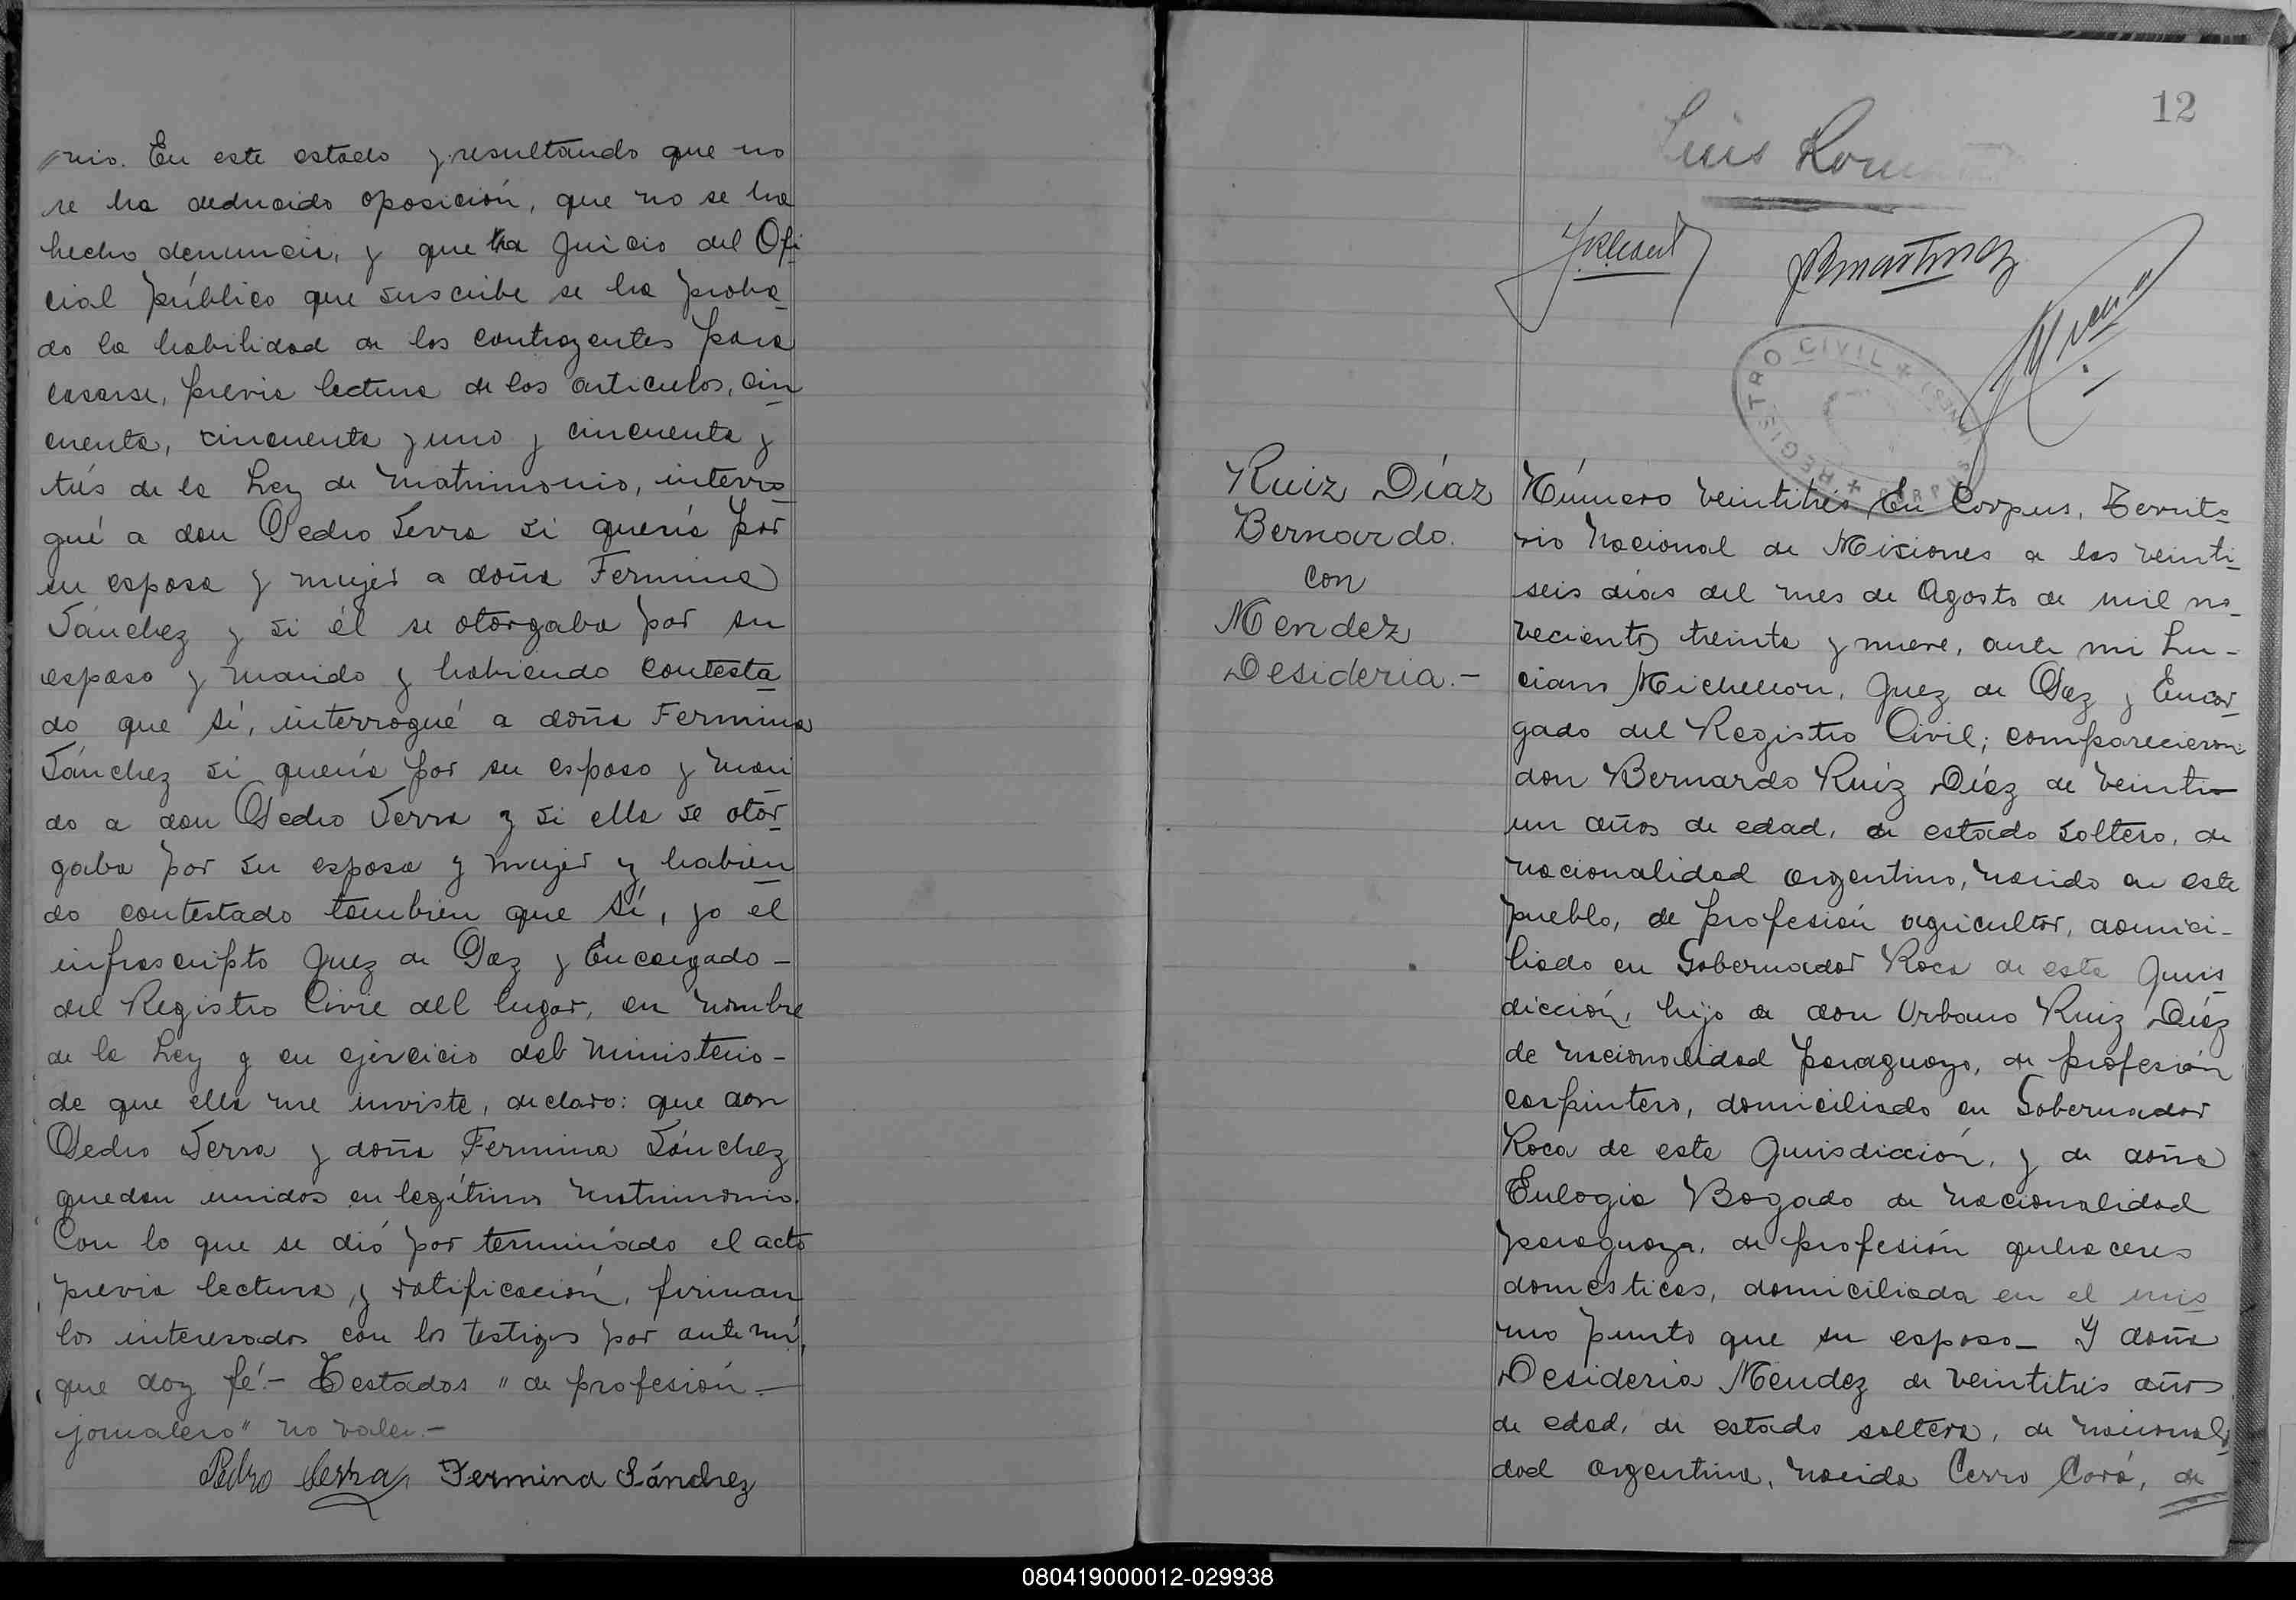 nio. En este estado y resultando que no
se ha deducido oposición, que no se ha
hecho denuncia, y que a juicio del Ofi
cial público que suscribe se ha proba_
do la habilidad de los contrayentes para
casarse, previa lectura de los artículos, cin
cuenta, cincuenta y uno y cincuenta y
tres de la Ley de Matrimonio, interro_
gué a don Pedro Serra si quería por
su esposa y mujer a doña Fermina
Sánchez y si él se otorgaba por su
esposo y marido y habiendo contesta_
do que sí, interrogué a doña Fermina
Sánchez si quería por su esposo y mari
do a don Pedro Serra y si ella se otor_
gaba por su esposa y mujer y habien_
do contestado tambien que sí, yo el
infrascripto Juez de Paz y Encargado -
del Registro Civil dell lugar, en nombre
de la Ley y en ejercicio del ministerio -
de que ella me inviste, declaro: que don
Pedro Serra y doña Fermina Sánchez
quedan unidos en legítimo matrimonio.
Con lo que se dió por terminado el acto
previa lectura, y ratificación, firman
los interesados con los testigos por ante mí,
que doy fé.- Testados "de profesión -
jornalero" no valen.-
Pedro Serra, Fermina Sánchez
12
Luis
REGISTRO CIVIL
Ruiz Díaz
Bernardo.
con
Mendez
Desideria.-
Número veintitrés En Corpus, Territo_
rio Nacional de Misiones a los veinti_
seis días del mes de Agosto de mil no_
vecientos treinta y nueve, ante mi Lu-
ciano Michelson, Juez de Paz y Encar_
gado del Registro Civil; comparecieron
don Bernardo Ruiz Díaz de veinti-
un años de edad, de estado soltero, de
nacionalidad argentino, nacido en este
pueblo, de profesión agricultor, domici-
liado en Gobernador Roca de esta Juris
dicción, hijo de don Urbano Ruiz Díaz
de nacionalidad paraguayo, de profesión
carpintero, domiciliado en Gobernador
Roca de esta Jurisdicción, y de doña
Eulogia Bogado de nacionalidad
paraguaya, de profesión quehaceres
domesticos, domiciliada en el mis_
mo punto que su esposo_ Y doña
Desideria Méndez de veintitrés años
de edad, de estado soltera, de nacionali_
dad argentina, nacida Cerro Corá, de
080419000012-029938